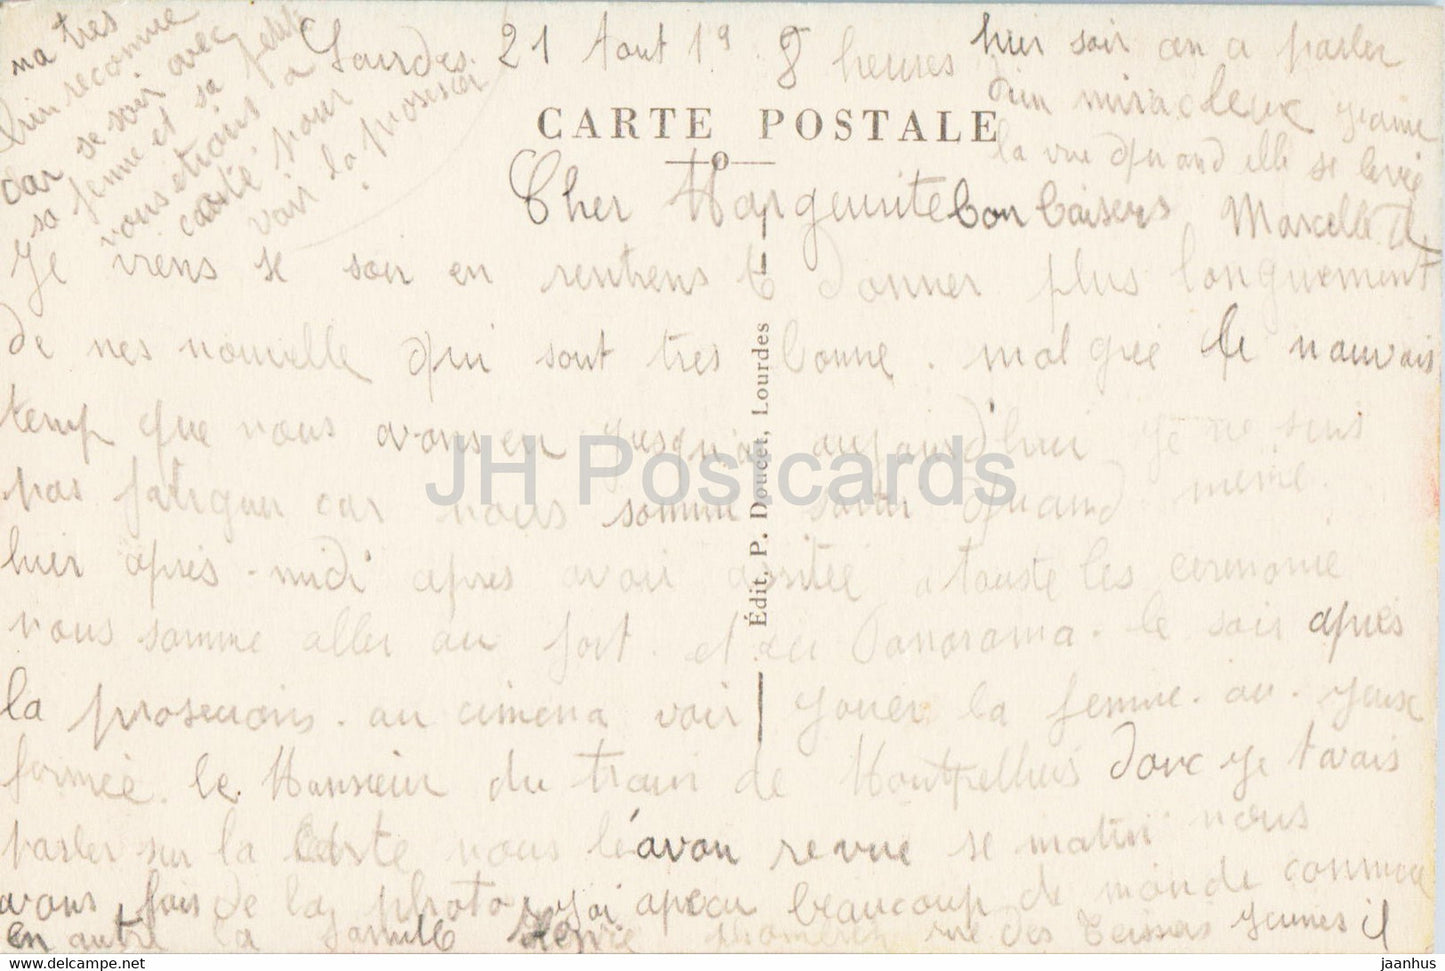 Lourdes 21 Aout 19 8 heures
CARTE POSTALE
Cher Marguerite
Je viens se soir en rentrens te donner plus longuement
de nes nouvelle qui sont tres bonne. malgrée le mauvais
temp que nous avons eu jusqu'a aujourd'hui je ne suis
pas fatiguer car nous somme sortir quand meme.
hier apres-midi apres avoir assitée a touste les ceremonie
nous somme aller au fort. et au Panorama. le soir apres
la prosecions. au cinema voir jouer la femme. au. yeux
fermée. le Monsieur du train de Montpellier donc je tavais
parler sur la carte nous l'avon revue se matin nous
avons fais de la photo, j'ai apercu beaucoup de monde connue
en autre la famille rue des Teissiers Jeunes il
ma tres
bien reconnue
car se soir avec
sa femme et sa petite
vous etrais a
carte pour
voir la prosecion
hier soir on a parler
d'un miracleux
la vue quand elle se
bon baisers Marcelle
Édit. P. Doucet, Lourdes
JH Postcards
www.delcampe.net
jaanhus